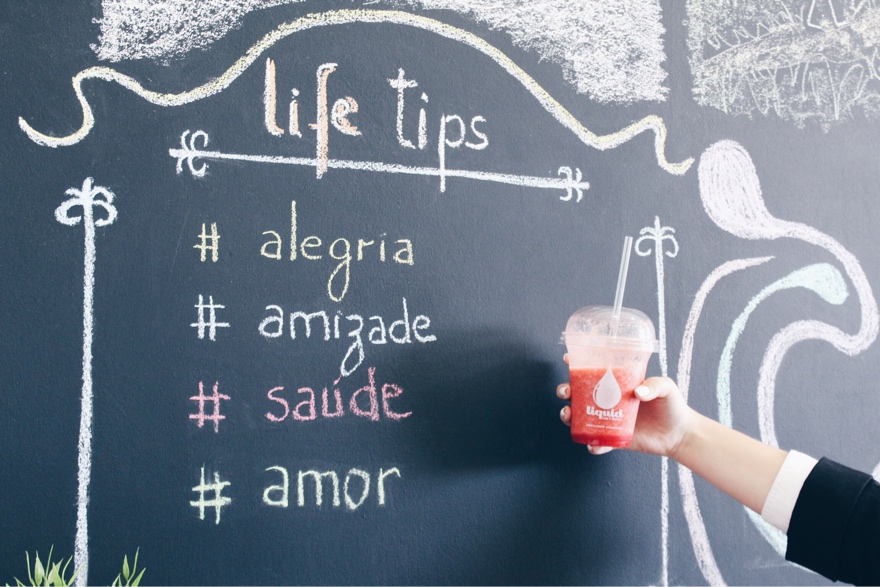 life tips
# alegria
# amizade
# saúde
# amor
liquid